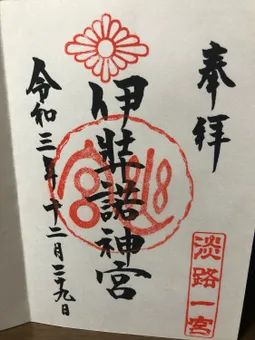 奉拝
伊弉諾神宮
令和三年十二月二十九日
淡路一宮